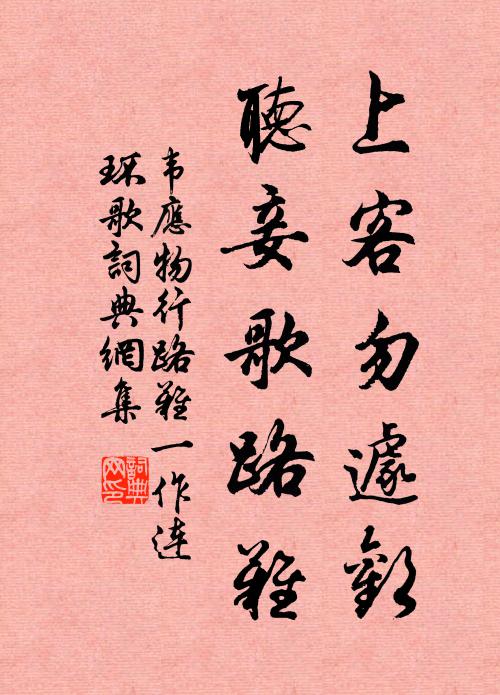 上客勿遽歡
聽妾歌路難
韦應物行路難一作連
環歌詞典網集
詞典
网印